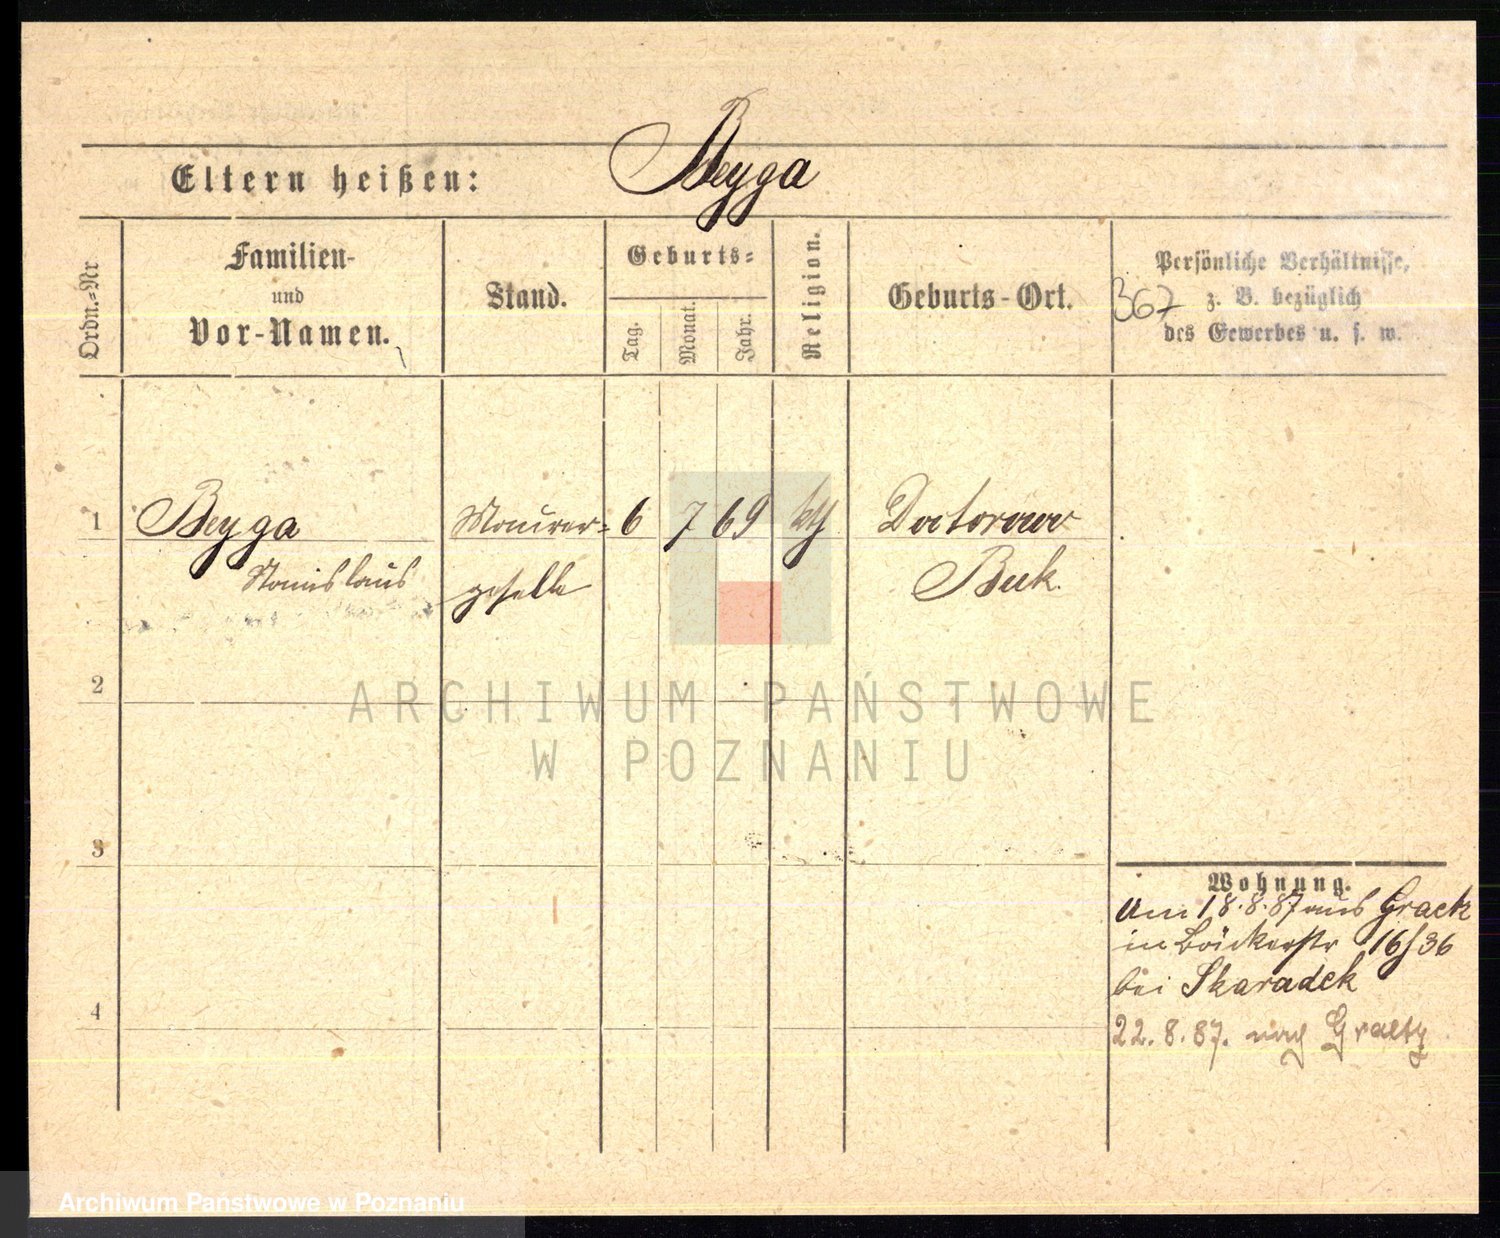 Beyga
Eltern heißen:
Ordn.=Nr
Familien-
und
Vor-Namen.
Stand.
Geburts=
Tag.
Monat.
Jahr.
Religion.
Geburts-Ort.
Persönliche Verhältnisse,
z. B. bezüglich
des Gewerbes u. s. w.
367
1
Beyga
Stanislaus
Maurer=
geselle
6
7
69
kth
Doctorowo
Buk.
2
3
4
Wohnung.
Am 18.8.87 aus Graetz
in Bäckerstr 16/36
bei Skaradek
22.8.87. nach Graetz
ARCHIWUM PAŃSTWOWE
W POZNANIU
Archiwum Państwowe w Poznaniu